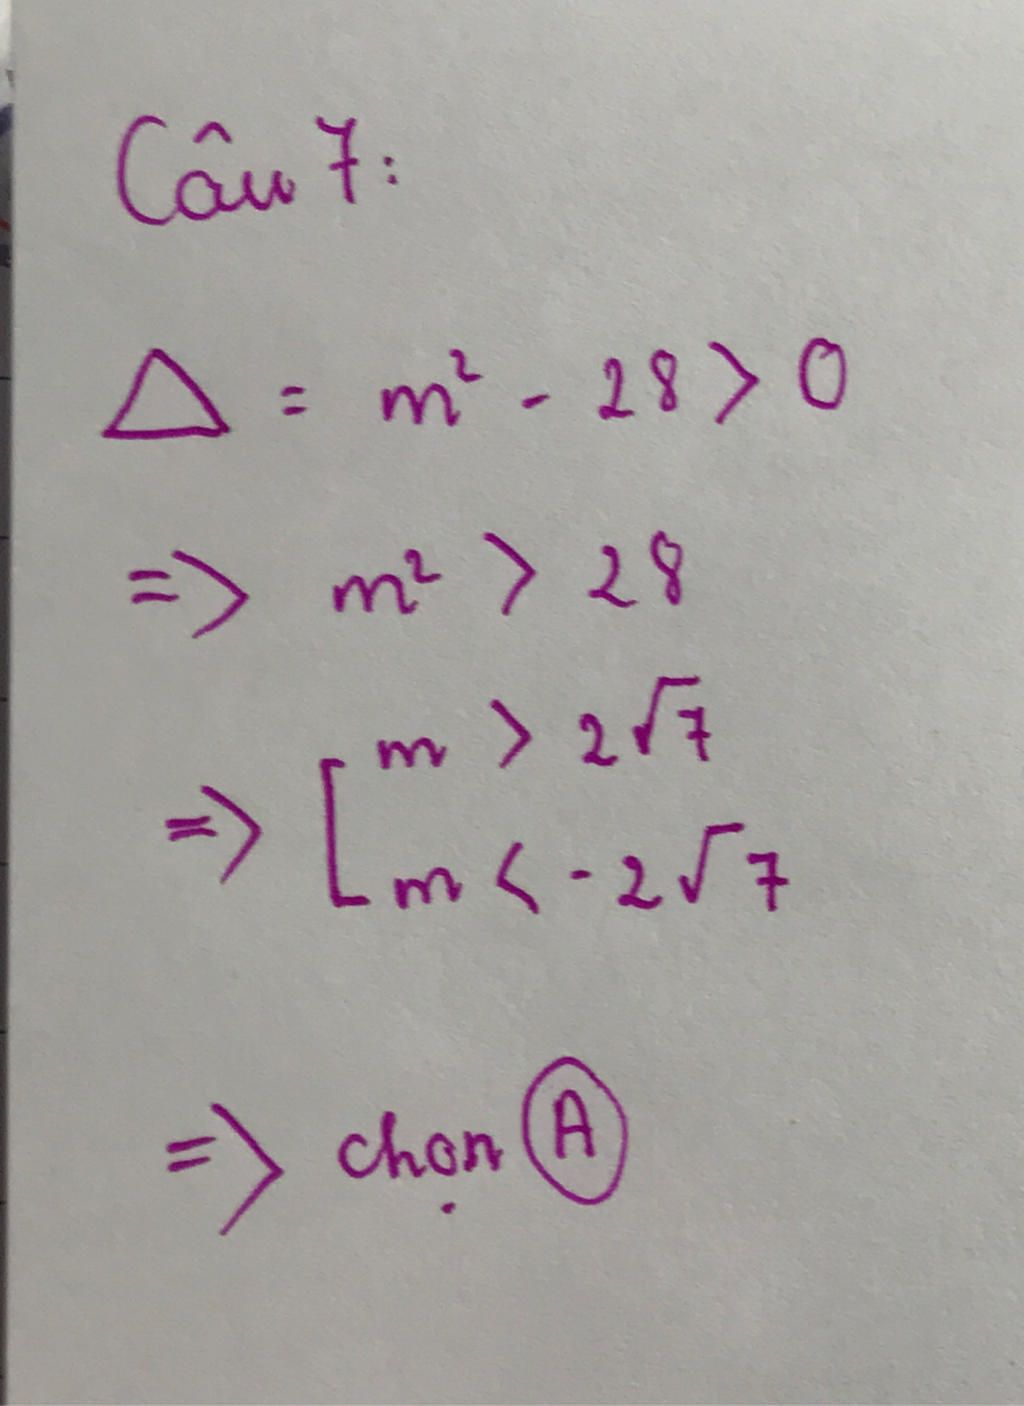 Câu 7:
△ = m² - 28 > 0
=> m² > 28
=> [ m > 2√7
m < -2√7
=> chọn A